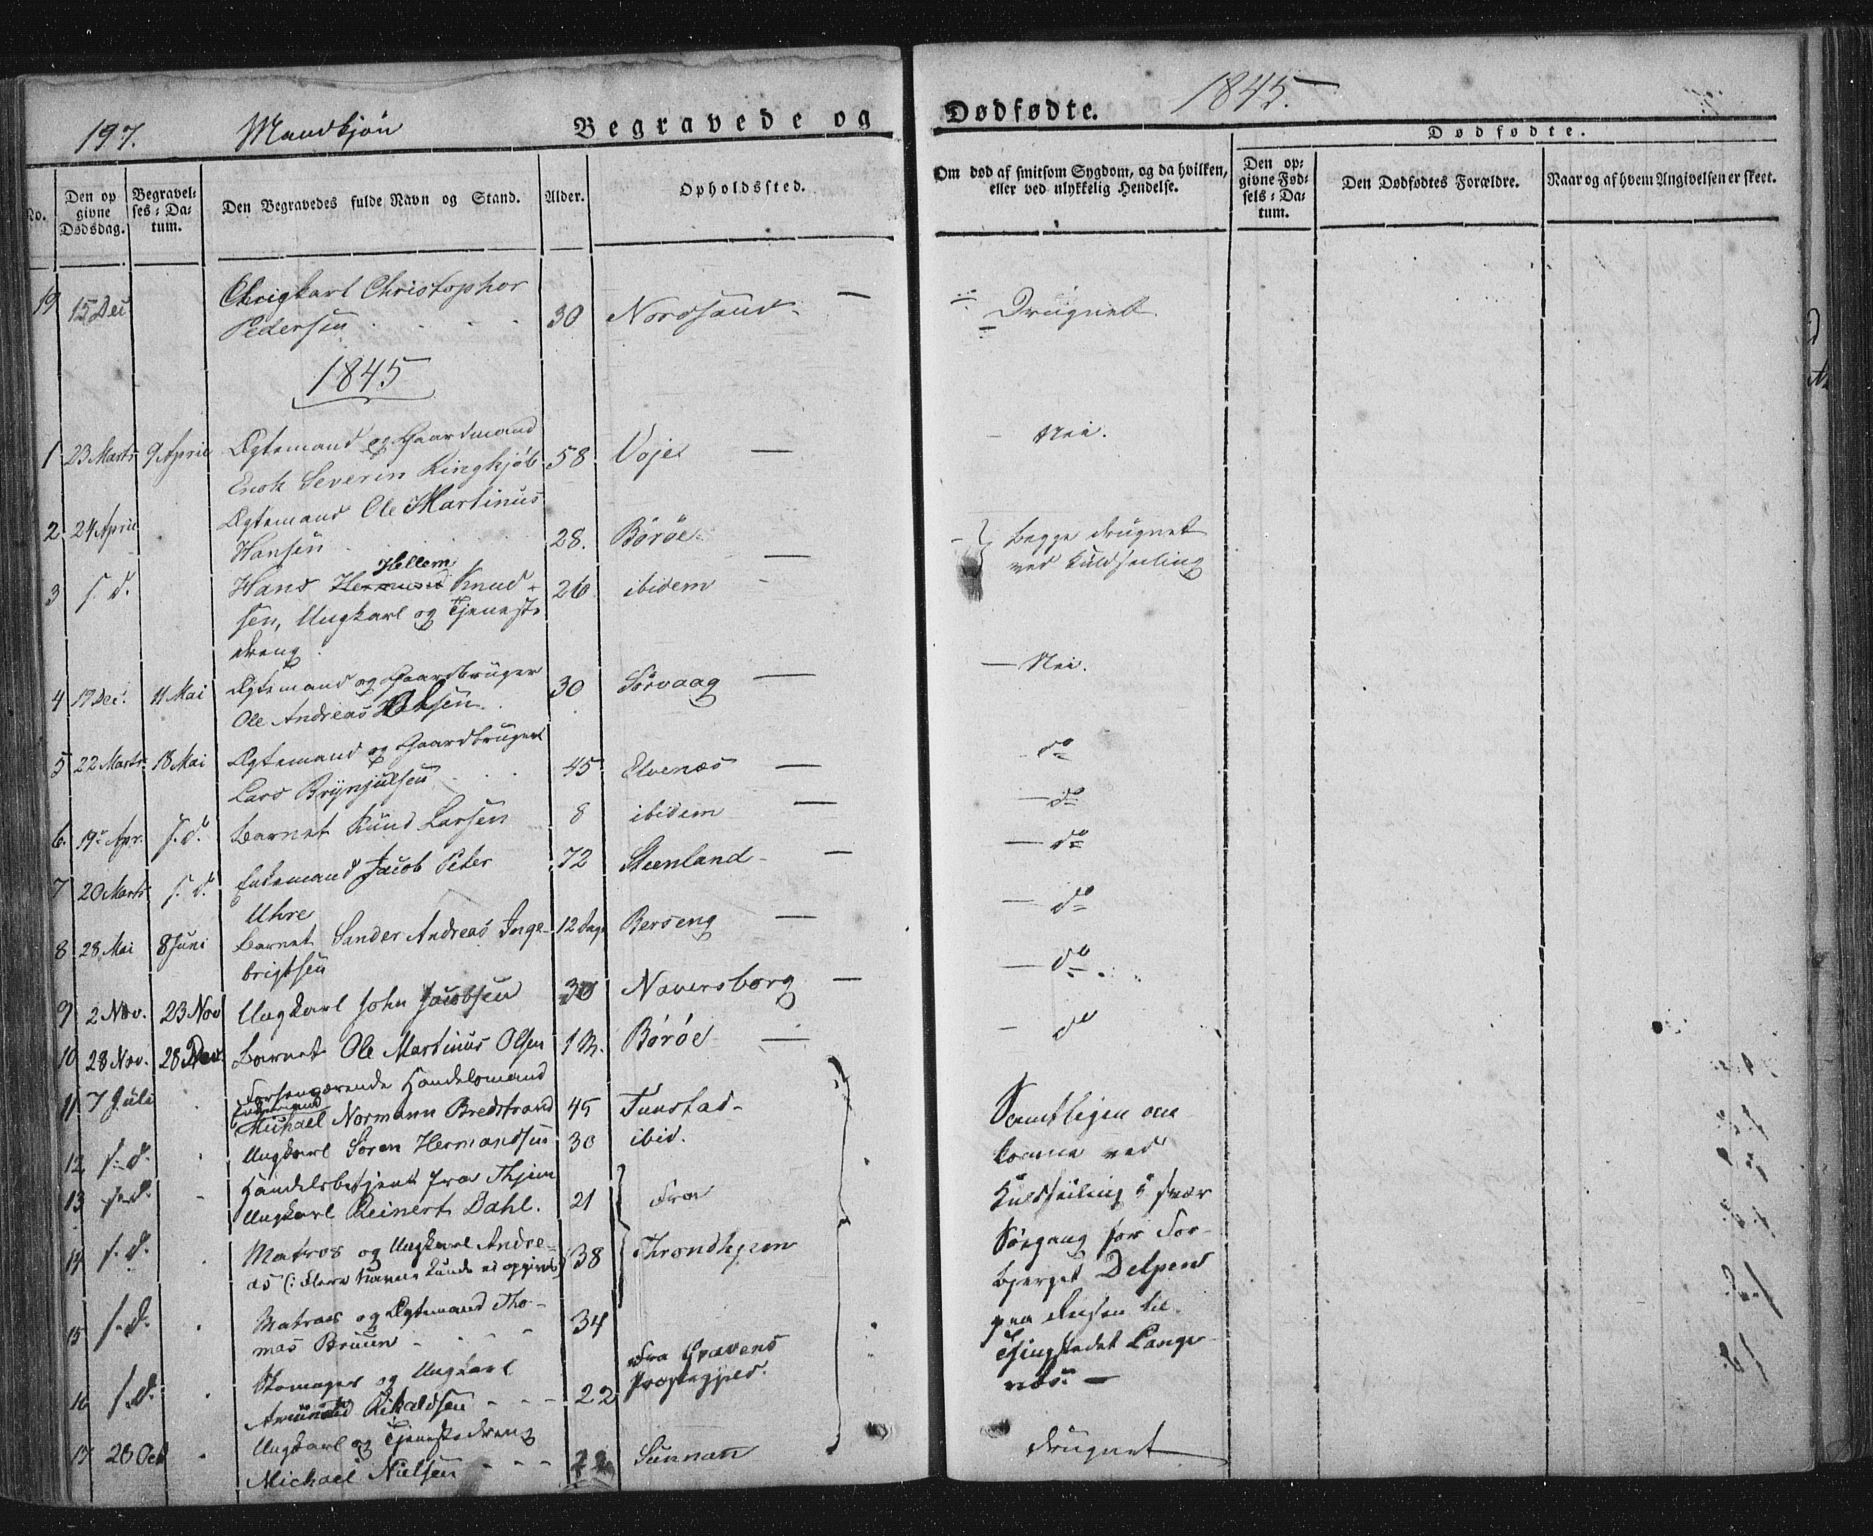 197. Mandkjøn Begravede og Dødfødte. 1845.
Dødfødte.
No.
Den opgivne Dødsdag.
Begravelses-Datum.
Den Begravedes fulde Navn og Stand.
Alder.
Opholdssted.
Om død af smitsom Sygdom, og da hvilken, eller ved ulykkelig Hendelse.
Den opgivne Fødsels-Datum.
Den Dødfødtes Forældre.
Naar og af hvem Angivelsen er skeet.
19 15 Dec Ungkarl Christopher
Pedersen 30 Nordsand — Drugnet
1845
1 23 Marts 9 April Ægtemand og Gaardmand
Enok Severin Ringkjøb 58 Voje — Nei.
2 24 April Ægtemand Ole Martinus
Hansen 28. Børøe — Begge drugnet
ved Kuldseiling
3 s. d. Hans Hellem Knud-
sen, Ungkarl og Tjeneste
dreng 26 ibidem
4 17 Dec. 11 Mai Ægtemand og Gaardbruger
Ole Andreas Olsen 30 Sørvaag — Nei.
5 22 Marts 18 Mai Ægtemand og Gaardbruger
Lars Brynjulsen 45 Elvenæs — do
6. 19 Apr. s. d. Barnet Knud Larsen 8 ibidem — do
7 20 Marts s. d. Enkemand Jacob Peter
Uhre 72 Steenland — do
8 28 Mai 8 Juni Barnet Sander Andreas Inge-
brigtsen 12 Dage Berseng — do
9 2 Nov. 23 Nov Ungkarl John Jacobsen 30 Naversborg — do
10 28 Nov. 28 Dec Barnet Ole Martinus Olsen 1 M. Børøe — do
11 7 Juli Forhenværende Handelsmand
Enkemand
Michael Normann Bredstrand 45 Tunstad
12 s. d. Ungkarl Søren Hermandsen 30 ibid.
13 s. d. Handelsbetjent fra Thjem
Ungkarl Reinert Dahl. 21 Fra
14 s. d. Matros og Ungkarl Andre-
as (: Flere Navne kunde ei opgives) 38 Throndhjem
15 s. d. Matros og Ægtemand Tho-
mas Bruun 34
16 s. d. Skomager og Ungkarl
Amund Rikaldsen 22 Fra Gravens
Præstegjeld.
Samtligen om
komne ved
Kuldseiling i svær
Søegang for For-
bjerget Delpen
paa Reisen til
Thingstedet Lange
næs. —
17 20 Oct Ungkarl og Tjenestedreng
Michael Nielsen 22 Sunnan drugnet